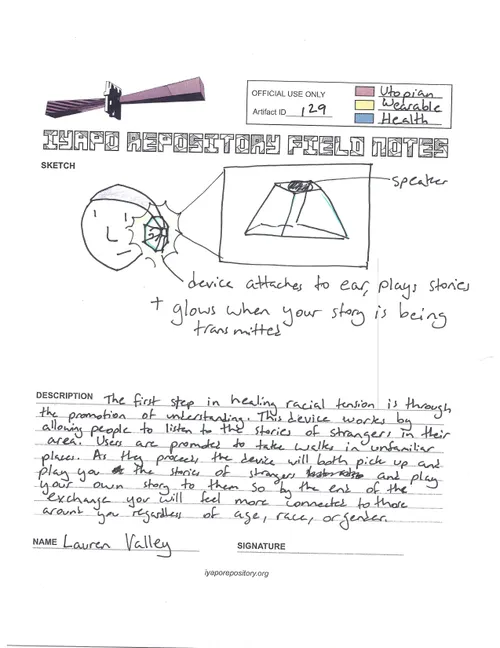 OFFICIAL USE ONLY
Artifact ID 129
Utopian
Wearable
Health
IYAPO REPOSITORY FIELD NOTES
SKETCH
speaker
device attaches to ear, plays stories
+ glows when your story is being
transmitted
DESCRIPTION The first step in healing racial tension is through
the promotion of understanding. This device works by
allowing people to listen to the stories of strangers in their
area. Users are promoted to take walks in unfamiliar
places. As they proceed, the device will both pick up and
play you the stories of strangers and play
your own story to them so by the end of the
exchange you will feel more connected to those
around you regardless of age, race, or gender.
NAME Lauren Valley
SIGNATURE
iyaporepository.org